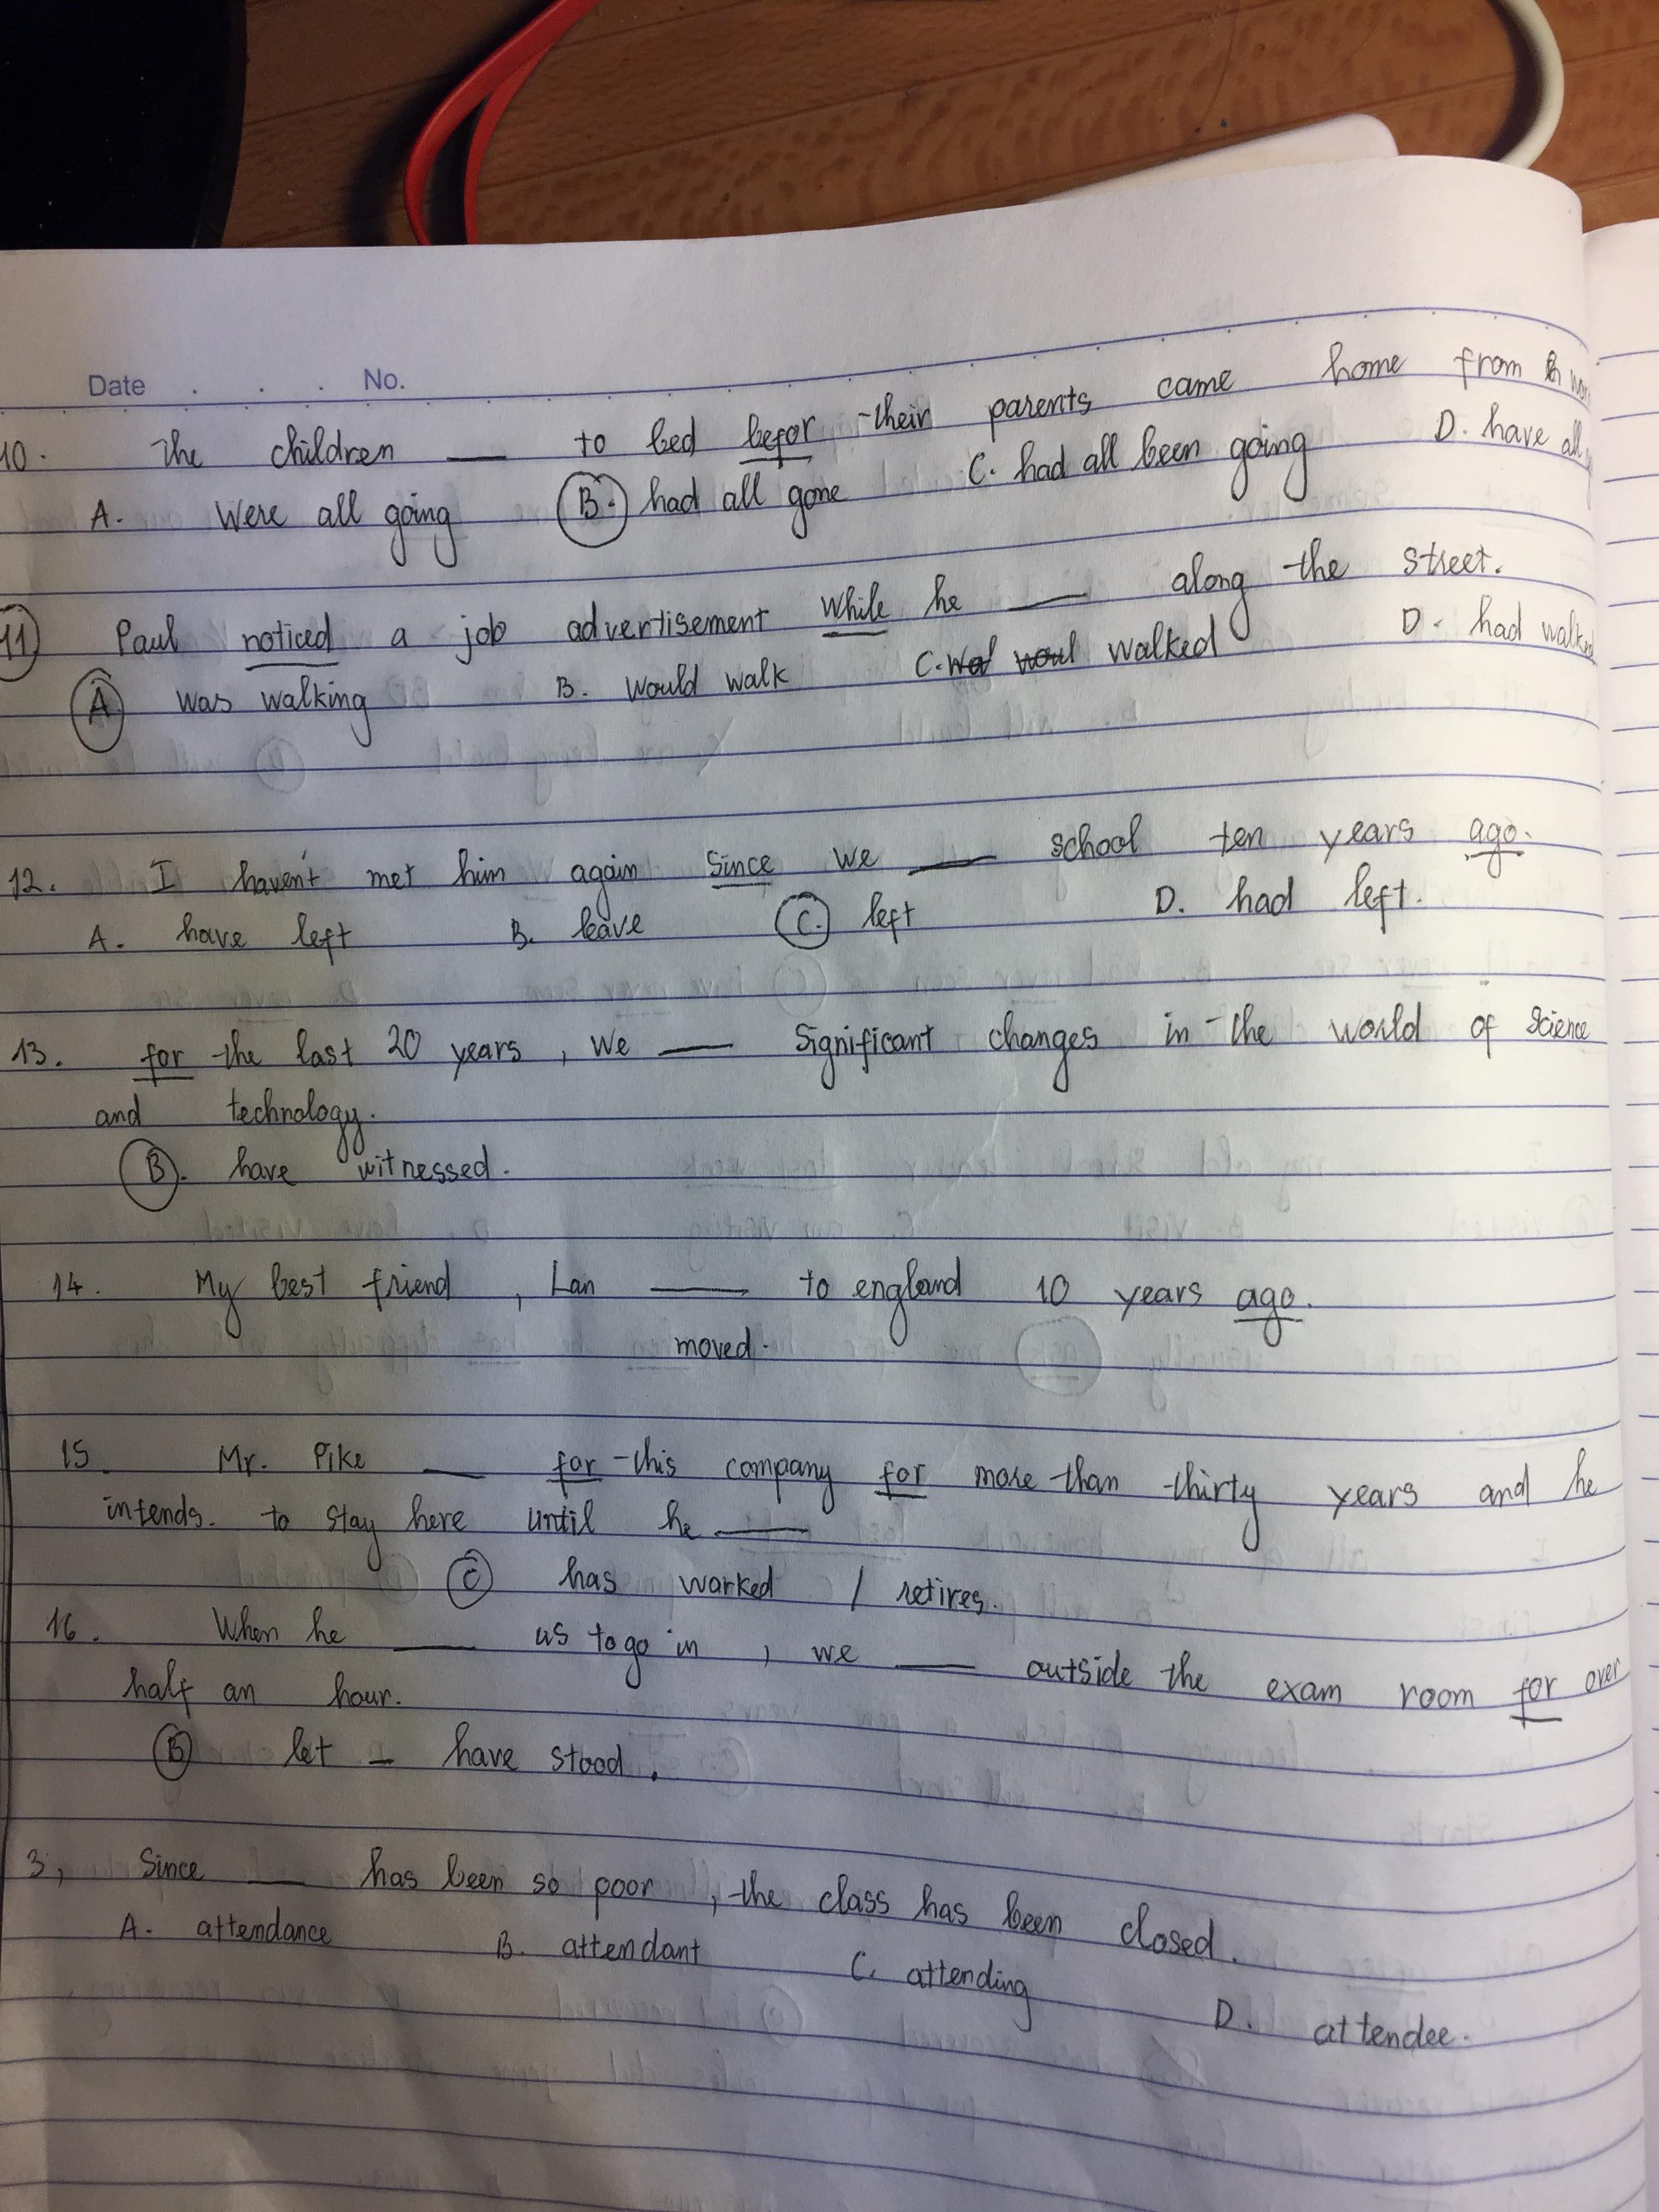 Date . . . No.
10. The children ___ to bed befor their parents came home from
A. Were all going B. had all gone C. had all been going D. have all
11 Paul noticed a job advertisement while he ___ along the street.
A was walking B. would walk C. walked D. had walked
12. I haven't met him again since we ___ school ten years ago.
A. have left B. leave C. left D. had left.
13. for the last 20 years, we ___ significant changes in the world of science
and technology.
B. have witnessed.
14. My best friend, Lan ___ to england 10 years ago.
moved.
15. Mr. Pike ___ for this company for more than thirty years and he
intends. to stay here until he ___
C has worked / retires.
16. When he ___ us to go in, we ___ outside the exam room for over
half an hour.
B let _ have stood.
3, Since ___ has been so poor, the class has been closed.
A. attendance B. attendant C. attending D. attendee.